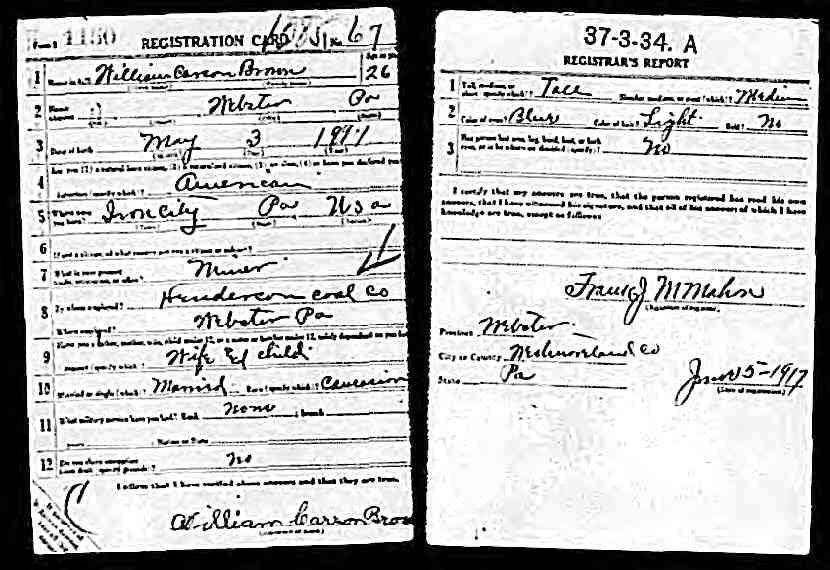 Form 1 1150 REGISTRATION CARD No. 67
1 Name in full William Carson Brown Age in yrs 26
2 Home address Webster Pa
3 Date of birth May 3 1891
4 American
5 Where were you born? Iron City Pa USA
6 If not a citizen, of what country are you a citizen or subject?
7 What is your present trade, occupation, or office? Miner
8 By whom employed? Henderson coal co
Where employed? Webster Pa
9 Have you a father, mother, wife, child under 12, or a sister or brother under 12, solely dependent on you for
support (specify which)? Wife & child
10 Married or single (which)? Married Race (specify which)? Caucasion
11 What military service have you had? Rank None ; branch
years ; Nation or State
12 Do you claim exemption from draft (specify grounds)? No
I affirm that I have verified above answers and that they are true.
William Carson Brown
37-3-34. A
REGISTRAR'S REPORT
1 Tall, medium, or short (specify which)? Tall Slender, medium, or stout (which)? Medium
2 Color of eyes? Blue Color of hair? Light Bald? No
3 Has person lost arm, leg, hand, foot, or both eyes, or is he otherwise disabled (specify)? No
I certify that my answers are true, that the person registered has read his own
answers, that I have witnessed his signature, and that all of his answers of which I have
knowledge are true, except as follows:
(Signature of registrar)
Precinct Webster
City or County Westmoreland Co
State Pa
June 5-1917
(Date of registration)